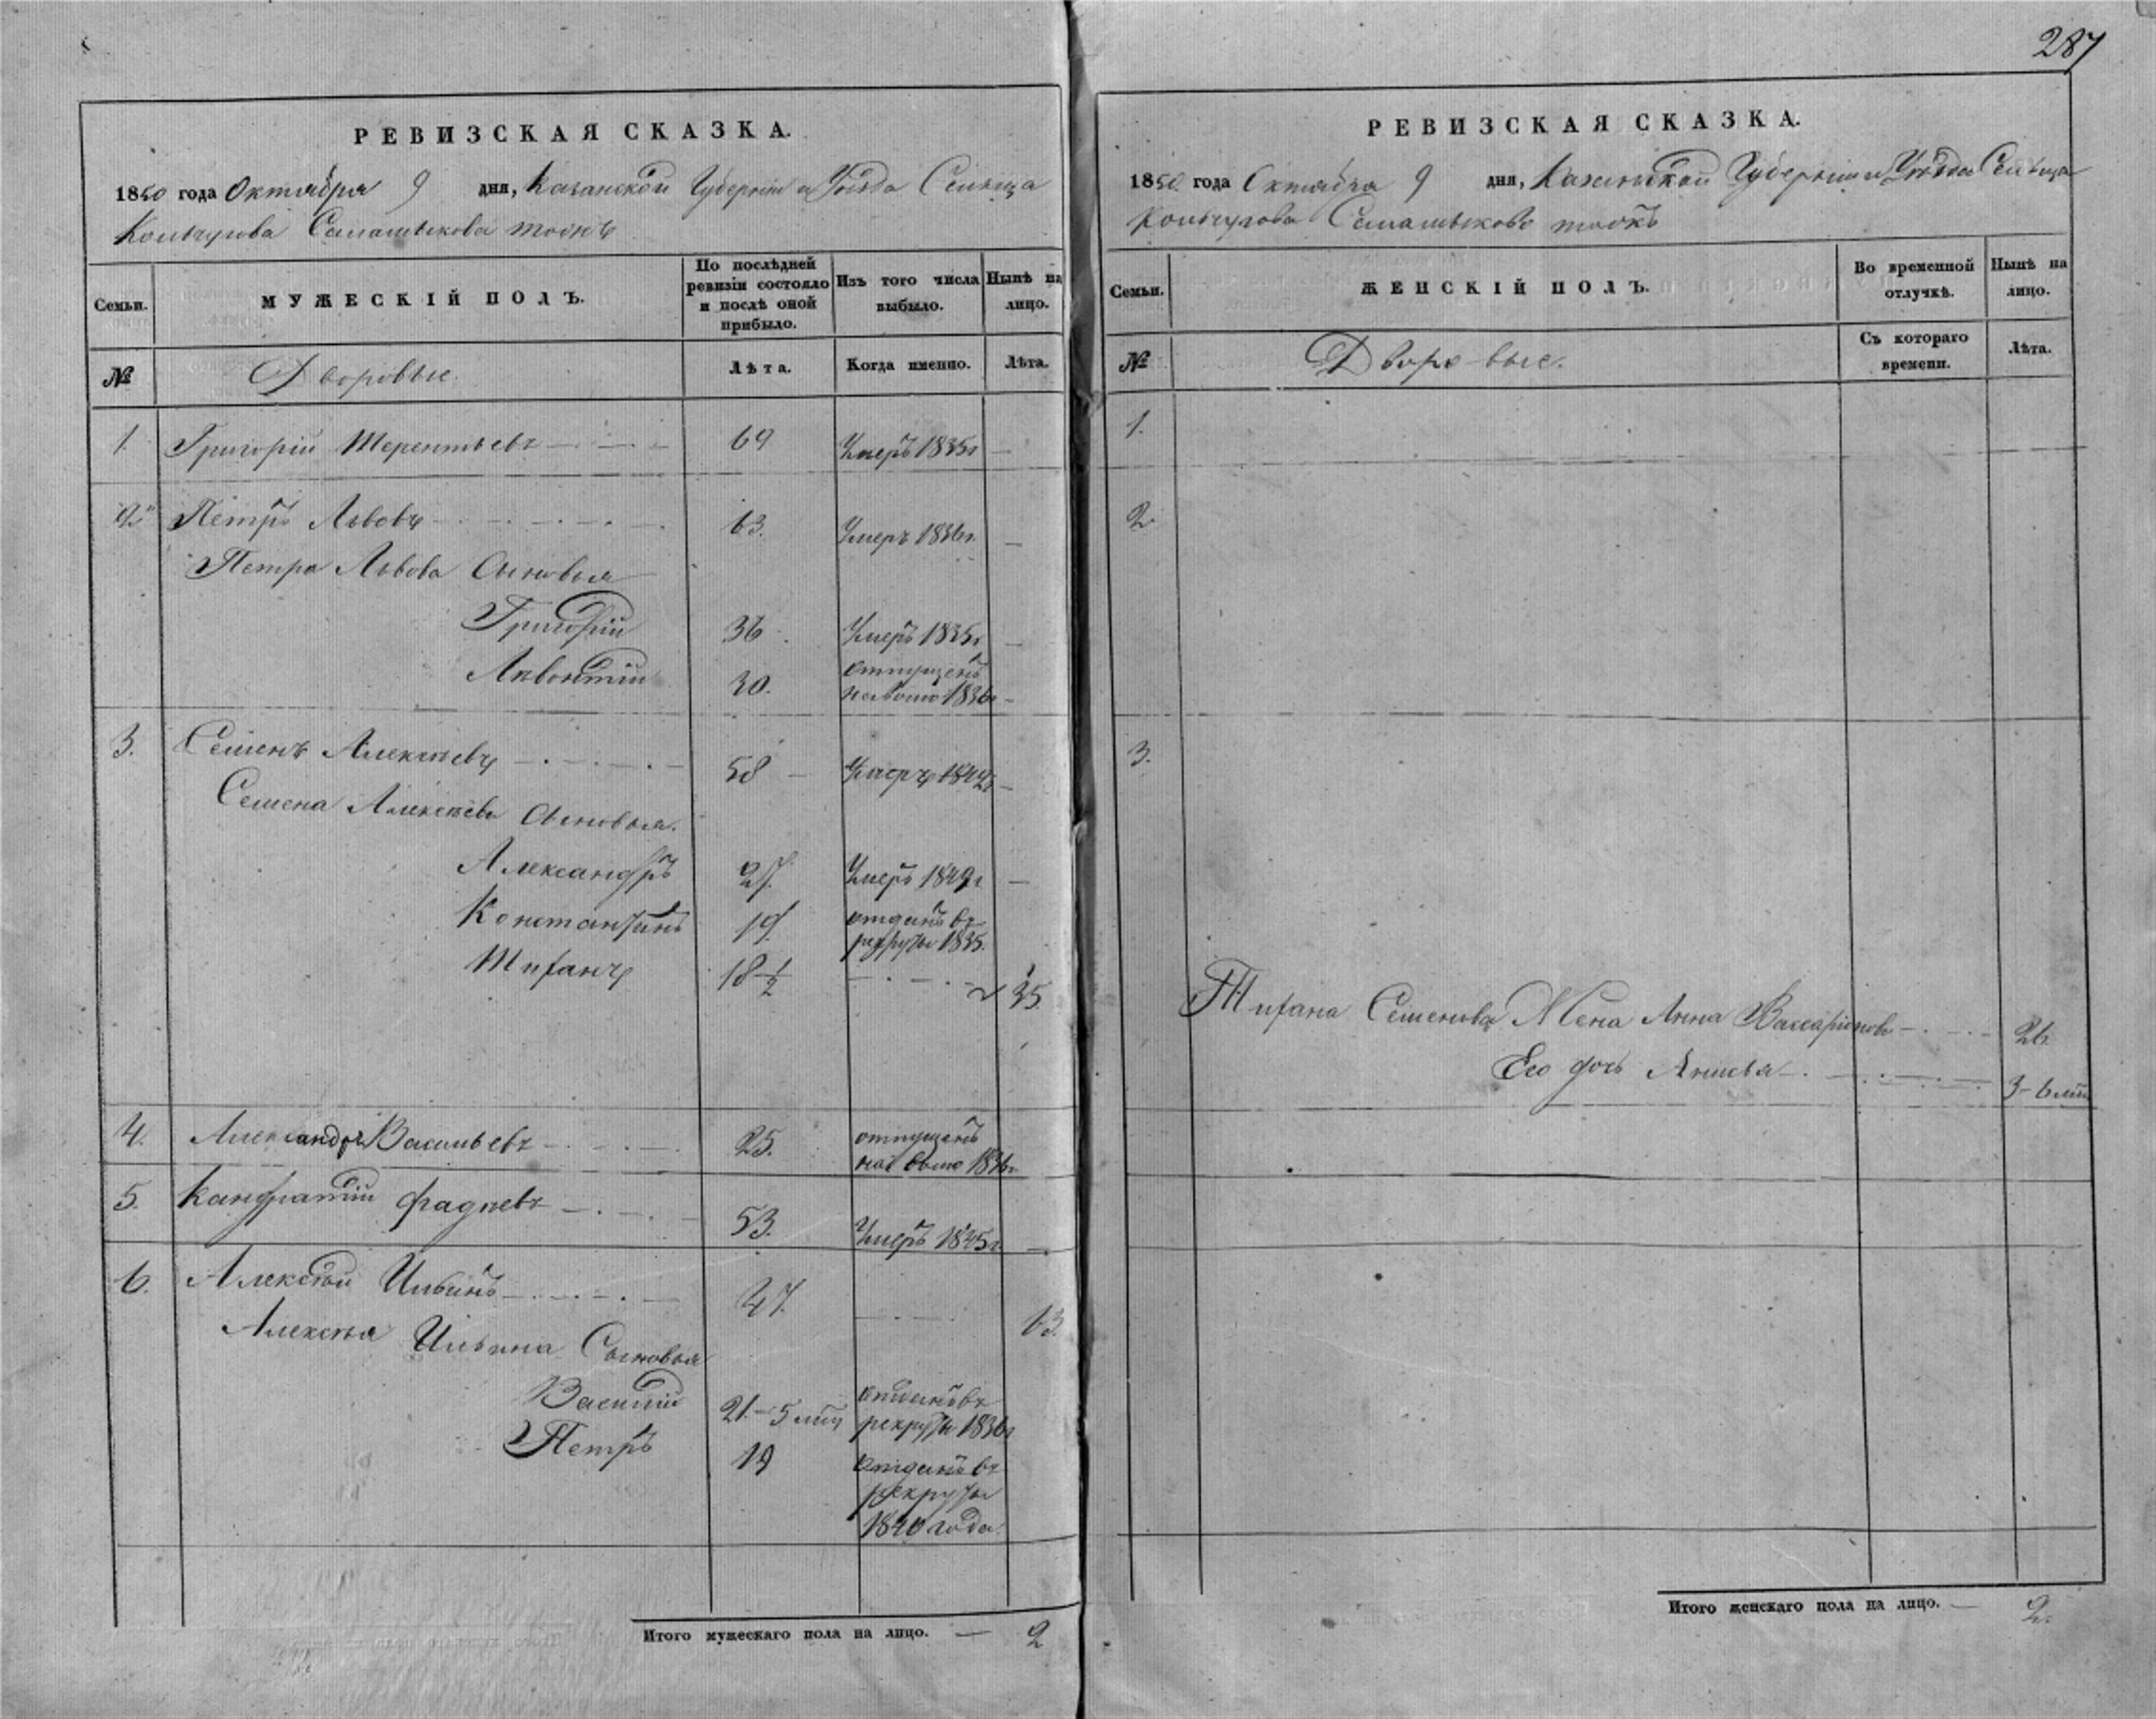 287
РЕВИЗСКАЯ СКАЗКА.
1850 года Октября 9 дня, Казанской Губерніи и Уѣзда Сельца
Кольчугова Самашъякова тожъ
Семьи. МУЖЕСКІЙ ПОЛЪ. По послѣдней ревизіи состояло и послѣ оной прибыло. Изъ того числа выбыло. Нынѣ на лицо.
№ Дворовые. Лѣта. Когда именно. Лѣта.
1. Григорій Терентьевъ 69 Умеръ 1835г —
2. Петръ Львовъ 63. Умеръ 1836г. —
Петра Львова Сыновья
Григорій 36. Умеръ 1835г —
Лквонтій 30. отпущенъ
на волю 1836г —
3. Семенъ Алексѣевъ 58 Умеръ 1844г —
Семена Алексѣева Сыновья.
Александръ 27. Умеръ 1849г —
Константинъ 19. отданъ въ
рекруты 1835.
Титанъ 18½ 35.
4. Александръ Васильевъ 25. отпущенъ
на волю 1836г
5. Кандратій Фадѣевъ 53. Умеръ 1845г. —
6. Алексѣй Ильинъ 47. 63.
Алексѣя Ильина Сыновья
Василій 21.–5 мѣц отданъ въ
рекруты 1836г
Петръ 19 отданъ въ
рекруты
1840 года.
Итого мужескаго пола на лицо. — 2
РЕВИЗСКАЯ СКАЗКА.
1850 года Октября 9 дня, Казанской Губерніи и Уѣзда Сельца
Кольчугова Самашъякова тожъ
Семьи. ЖЕНСКІЙ ПОЛЪ. Во временной отлучкѣ. Нынѣ на лицо.
№ Дворовые. Съ котораго времени. Лѣта.
1.
2.
3.
Титана Семенова Жена Анна Вассаріонова 26.
Его дочь 3–6 мѣц
Итого женскаго пола на лицо. — 2.